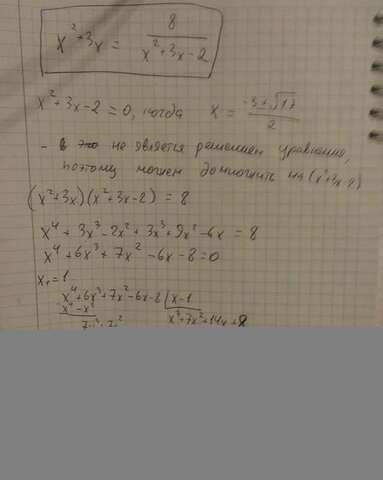 x² + 3x = 8 / (x² + 3x - 2)
x² + 3x - 2 = 0, когда x = (-3 ± √17) / 2
- это не является решением уравнения,
поэтому можем домножить на (x² + 3x - 2)
(x² + 3x)(x² + 3x - 2) = 8
x⁴ + 3x³ - 2x² + 3x³ + 9x² - 6x = 8
x⁴ + 6x³ + 7x² - 6x - 8 = 0
x₁ = 1
x⁴ + 6x³ + 7x² - 6x - 8 | x - 1
x⁴ - x³ x³ + 7x² + 14x + 8